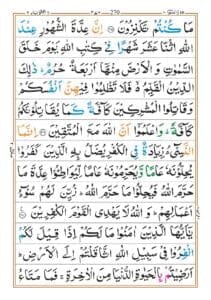 مَا كُنْتُمْ تَكْنِزُوْنَ ۝ اِنَّ عِدَّةَ الشُّهُوْرِ عِنْدَ
اللّٰهِ اثْنَا عَشَرَ شَهْرًا فِيْ كِتٰبِ اللّٰهِ يَوْمَ خَلَقَ
السَّمٰوٰتِ وَ الْاَرْضَ مِنْهَاۤ اَرْبَعَةٌ حُرُمٌ ؕ ذٰلِكَ
الدِّيْنُ الْقَيِّمُ ۙ فَلَا تَظْلِمُوْا فِيْهِنَّ اَنْفُسَكُمْ
وَقَاتِلُوا الْمُشْرِكِيْنَ كَآفَّةً كَمَا يُقَاتِلُوْنَكُمْ
كَآفَّةً ؕ وَاعْلَمُوْۤا اَنَّ اللّٰهَ مَعَ الْمُتَّقِيْنَ ۝ اِنَّمَا
النَّسِيْٓءُ زِيَادَةٌ فِي الْكُفْرِ يُضَلُّ بِهِ الَّذِيْنَ كَفَرُوْا
يُحِلُّوْنَهٗ عَامًا وَّيُحَرِّمُوْنَهٗ عَامًا لِّيُوَاطِـُٔوْا عِدَّةَ مَا
حَرَّمَ اللّٰهُ فَيُحِلُّوْا مَا حَرَّمَ اللّٰهُ ؕ زُيِّنَ لَهُمْ سُوْٓءُ
اَعْمَالِهِمْ ؕ وَاللّٰهُ لَا يَهْدِي الْقَوْمَ الْكٰفِرِيْنَ ۝
يٰۤاَيُّهَا الَّذِيْنَ اٰمَنُوْا مَا لَكُمْ اِذَا قِيْلَ لَكُمُ
انْفِرُوْا فِيْ سَبِيْلِ اللّٰهِ اثَّاقَلْتُمْ اِلَى الْاَرْضِ ؕ
اَرَضِيْتُمْ بِالْحَيٰوةِ الدُّنْيَا مِنَ الْاٰخِرَةِ ۚ فَمَا مَتَاعُ